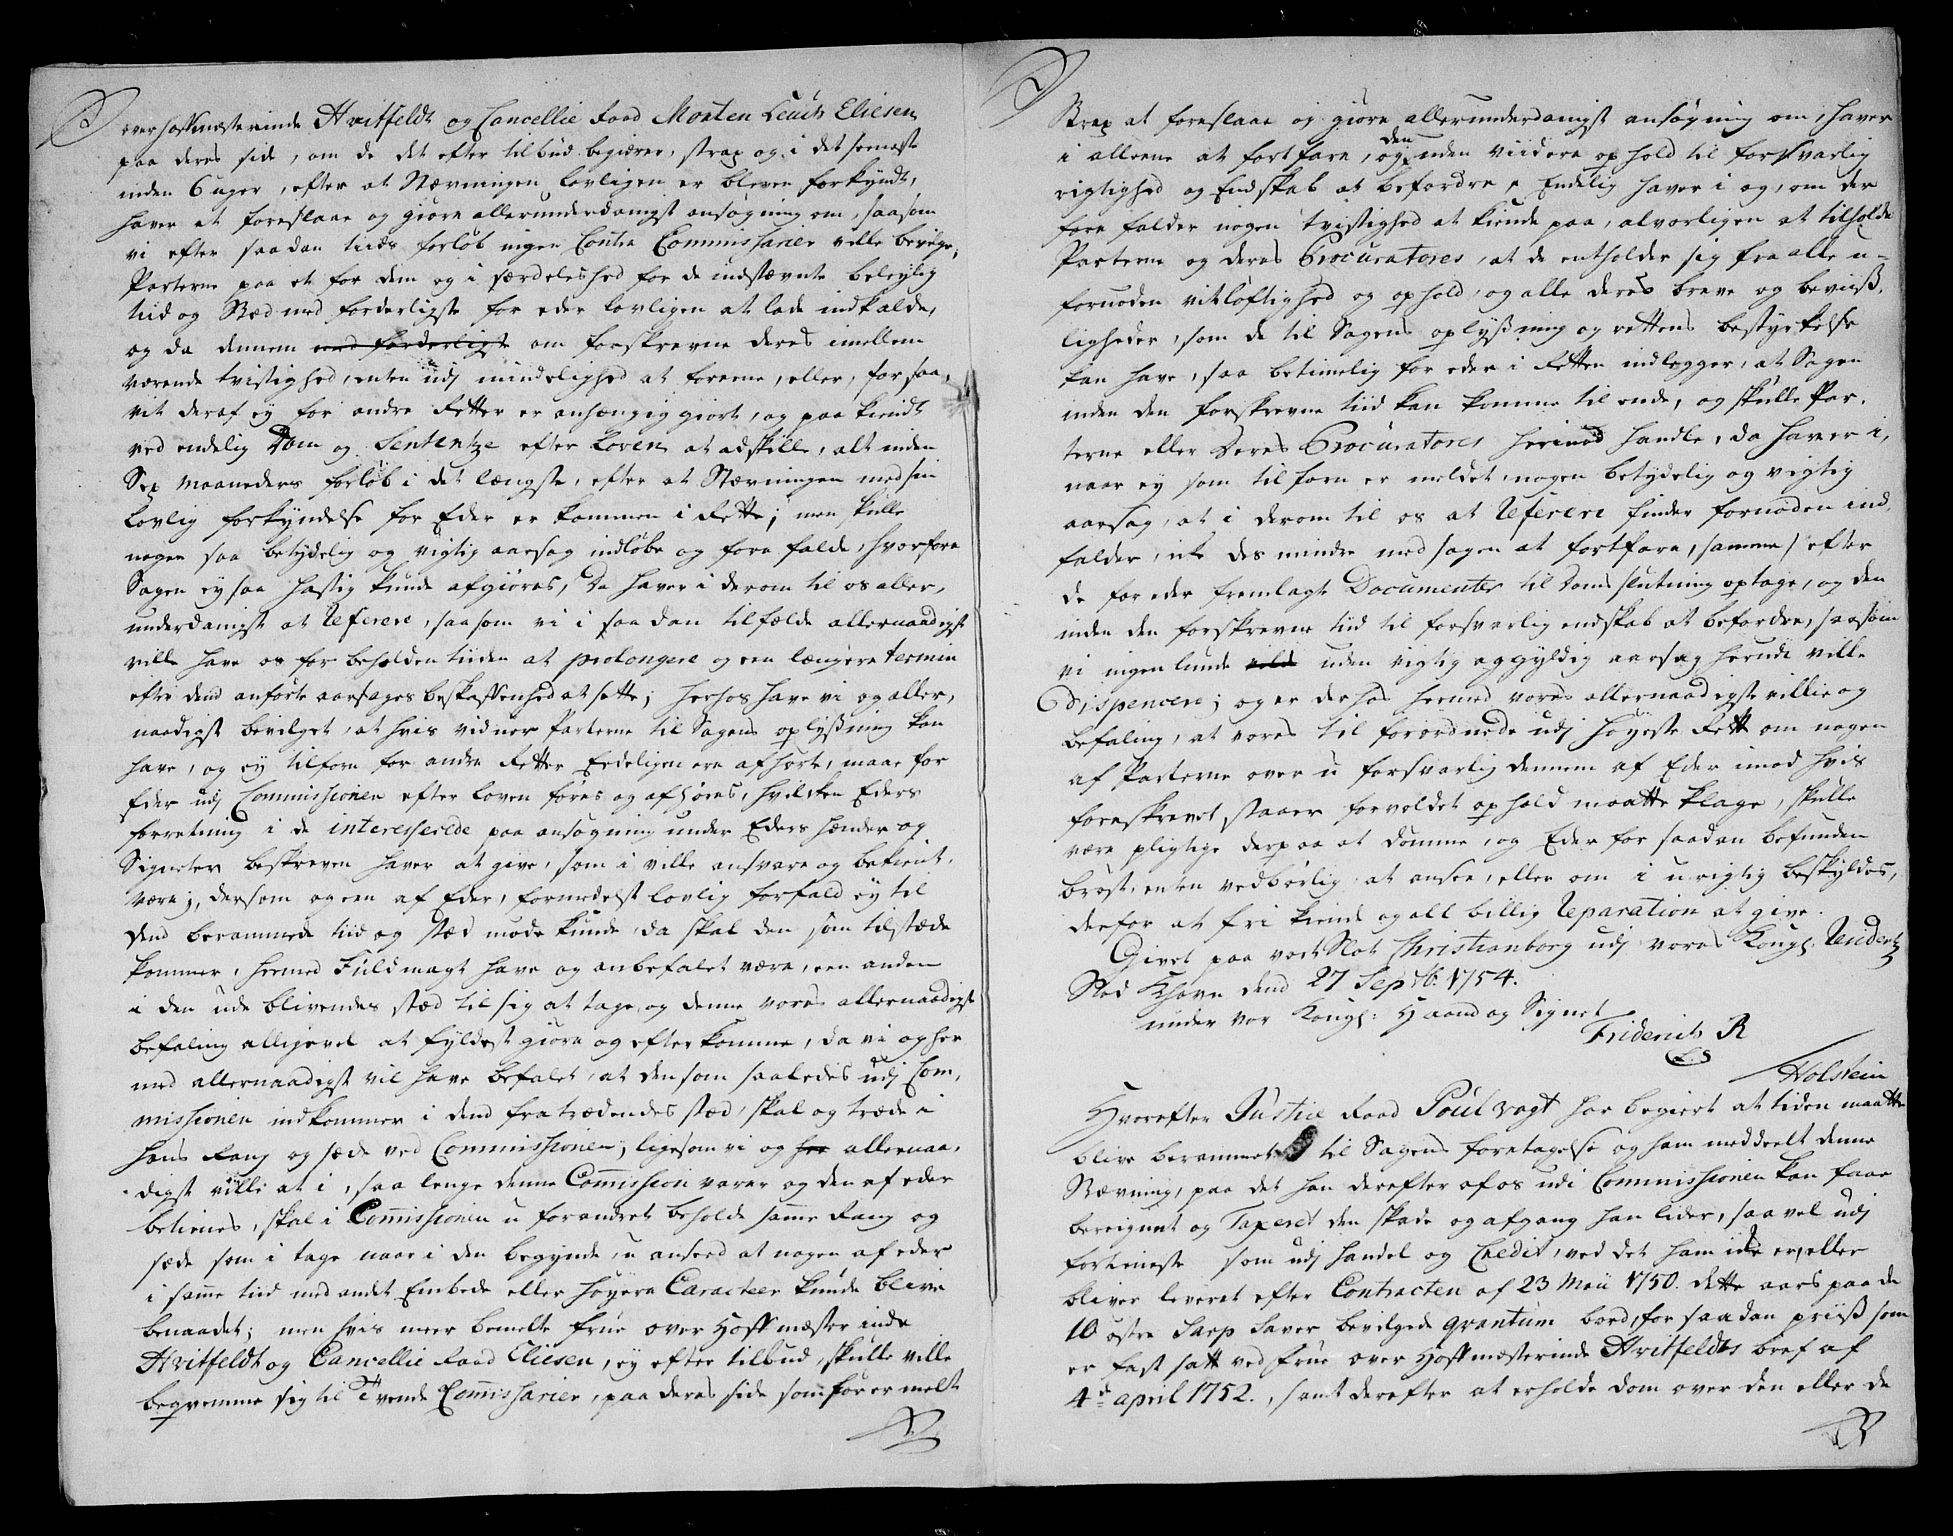 overhoffmesterinde Hvitfeldt og Cancellie Raad Morten Leuch Eliesen
paa deres side, om de det efter tilbud begiærer, strax og i det seeneste
inden 6 uger, efter at Stævningen lovligen er bleven forkyndt,
haver at foreslaae og giøre allerunderdanigst ansøgning om, saasom
vi efter saadan tiids forløb ingen Contra Commissarier ville bevilge;
Parterne paa et for dem og i særdeleshed for de indstævnte beleylig
tiid og Stæd med forderligste for eder lovligen at lade indkalde,
og da dennem med forderligst om forskrevne deres imellem
værende tvistighed, enten udj mindelighed at foreene, eller, forsaa,
vit deraf ey for andre Retter er anhængig giort, og paa kiendt
ved endelig Dom og Sententze efter Loven at adskille, alt inden
Sex maaneders forløb i det længste, efter at Stævningen med sin
Lovlig forkyndelse for Eder er kommen i Rette; men kulle
nogen saa betydelig og vigtig aarsag indløbe og fore falde, hvorfore
Sagen ey saa hastig kunde afgiøres, Da haver i derom til os aller,
underdanigst at Referere, saasom vi i saadan tilfælde allernaadigst
ville have os for beholden tiiden at prolongere og een længere termin
efter dend anførte aarsages beskaffenhed at sette; herhos have vi og aller,
naadigst bevilget, at hvis vidner Parterne til Sagens oplysning kan
have, og ey tilforn for andre Retter Eedeligen ere afhørte, maae for
Eder udj Commissionen efter loven føres og afhøres, hvilken Eders
forretning i de interesserede paa ansøgning under Eders hænder og
Signeter beskreven haver at give, som i ville ansvare og bekient,
være; dersom og een af Eder, formedelst lovlig forfald ey til
dend berammede tiid og stæd møde kunde, da skal den som tilstæde
kommer, hermed Fuldmagt have og anbefalet være, een anden
i den ude blivendes stæd til sig at tage, og denne vores allernaadigste
befaling alligevel at fyldest giøre og efterkomme, da vi og her
med allernaadigst vil have befalet, at den som saaledes udj Com,
missionen indkommer i dend fratrædendes stæd, skal og træde i
hans Rang og sæde ved Commissionen; ligesom vi og her allernaa,
digst ville at i, saa lenge denne Commission varer og den af eder
betienes, skal i Commissionen u forandret beholde samme Rang og
sæde som i tage naar i den begynde, u anseed at nogen af eder
i samme tiid med andet Embede eller høyere Caracteer kunde blive
benaadet; men hvis meer bemelte frue over Hoffmesterinde
Hvitfeldt og Cancellie Raad Eliesen, ey efter tilbud, skulle ville
beqvemme sig til Tvende Commissarier, paa deres side som før er melt
Strax at foreslaae og giøre allerunderdanigst ansøgning om, haver
i alleene at fortfare, og den uden viidere ophold til forsvarlig
rigtighed og Endskab at befordre, Endelig haver i og, om der
fore falder nogen tvistighed at kiende paa, alvorligen at tilholde
Parterne og deres Procuratores, at de entholder sig fra alle u-
fornøden vitløftighed og ophold, og alle deres breve og beviis,
ligheder, som de til Sagens oplysning og rettens bestyrkelse
kan have, saa betimelig for eder i Retten indlegger, at Sagen
inden den forskrevne tiid kan komme til ende, og skulle Par,
terne eller deres Procuratores herimod handle, da haver i,
naar ey som tilforn er meldet, nogen betydelig og vigtig
aarsag, at i derom til os at Referere finder fornøden ind,
falder, ike des mindre med sagen at fortfare, samme efter
de for eder fremlagte Documenter til Doms slutning optage, og den
inden den forskrevne tiid til forsvarlig endskab at befordre, saasom
vi ingenlunde vilde uden vigtig og gyldig aarsag herudi ville
Dispencere; og er derhos hermed vores allernaadigste villie og
befaling, at vores til forordnede udj Høyeste Rett om nogen
af Parterne over u forsvarlig dennem af Eder imod hvis
foreskrevet staaer forvoldet ophold maatte klage, skulle
være pligtige derpaa at dømme, og Eder for saadan befunden
brøst, enten vedbørlig at ansee, eller om i urigtig beskyldes,
derfor at fri kiende og all billig Reparation at give.
Givet paa vort Slot Christianborg udj vores Kongl. Residentz
Stad Khavn dend 27 Septb. 1754.
under vor Kongl: Haand og Signet
Friderich R
L.S
Holstein
Hvorefter Justice Raad Poul Vogt har begiert at tiden maatte
blive berammet til Sagens foretagelse og ham meddeelt denne
Stævning, paa det han derefter af os udi Commissionen kan faae
bereignet og Taxeret den skade og afgang han lider, saa vel udj
fortieniste som udj handel og Credit, ved det ham icke er, eller
bliver leveret efter Contracten af 23 Maii 1750. dette aars paa de
10 østre Sarp Sauer bevilgede qvantum bord, for saadan priis som
er fast satt ved frue over Hoffmesterinde Hvitfeldts bref af
4de april 1752., samt derefter at erholde dom over den eller de